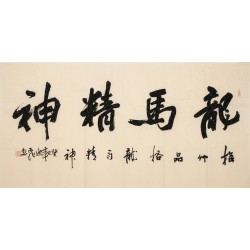 龍馬精神
松竹品格龍馬精神